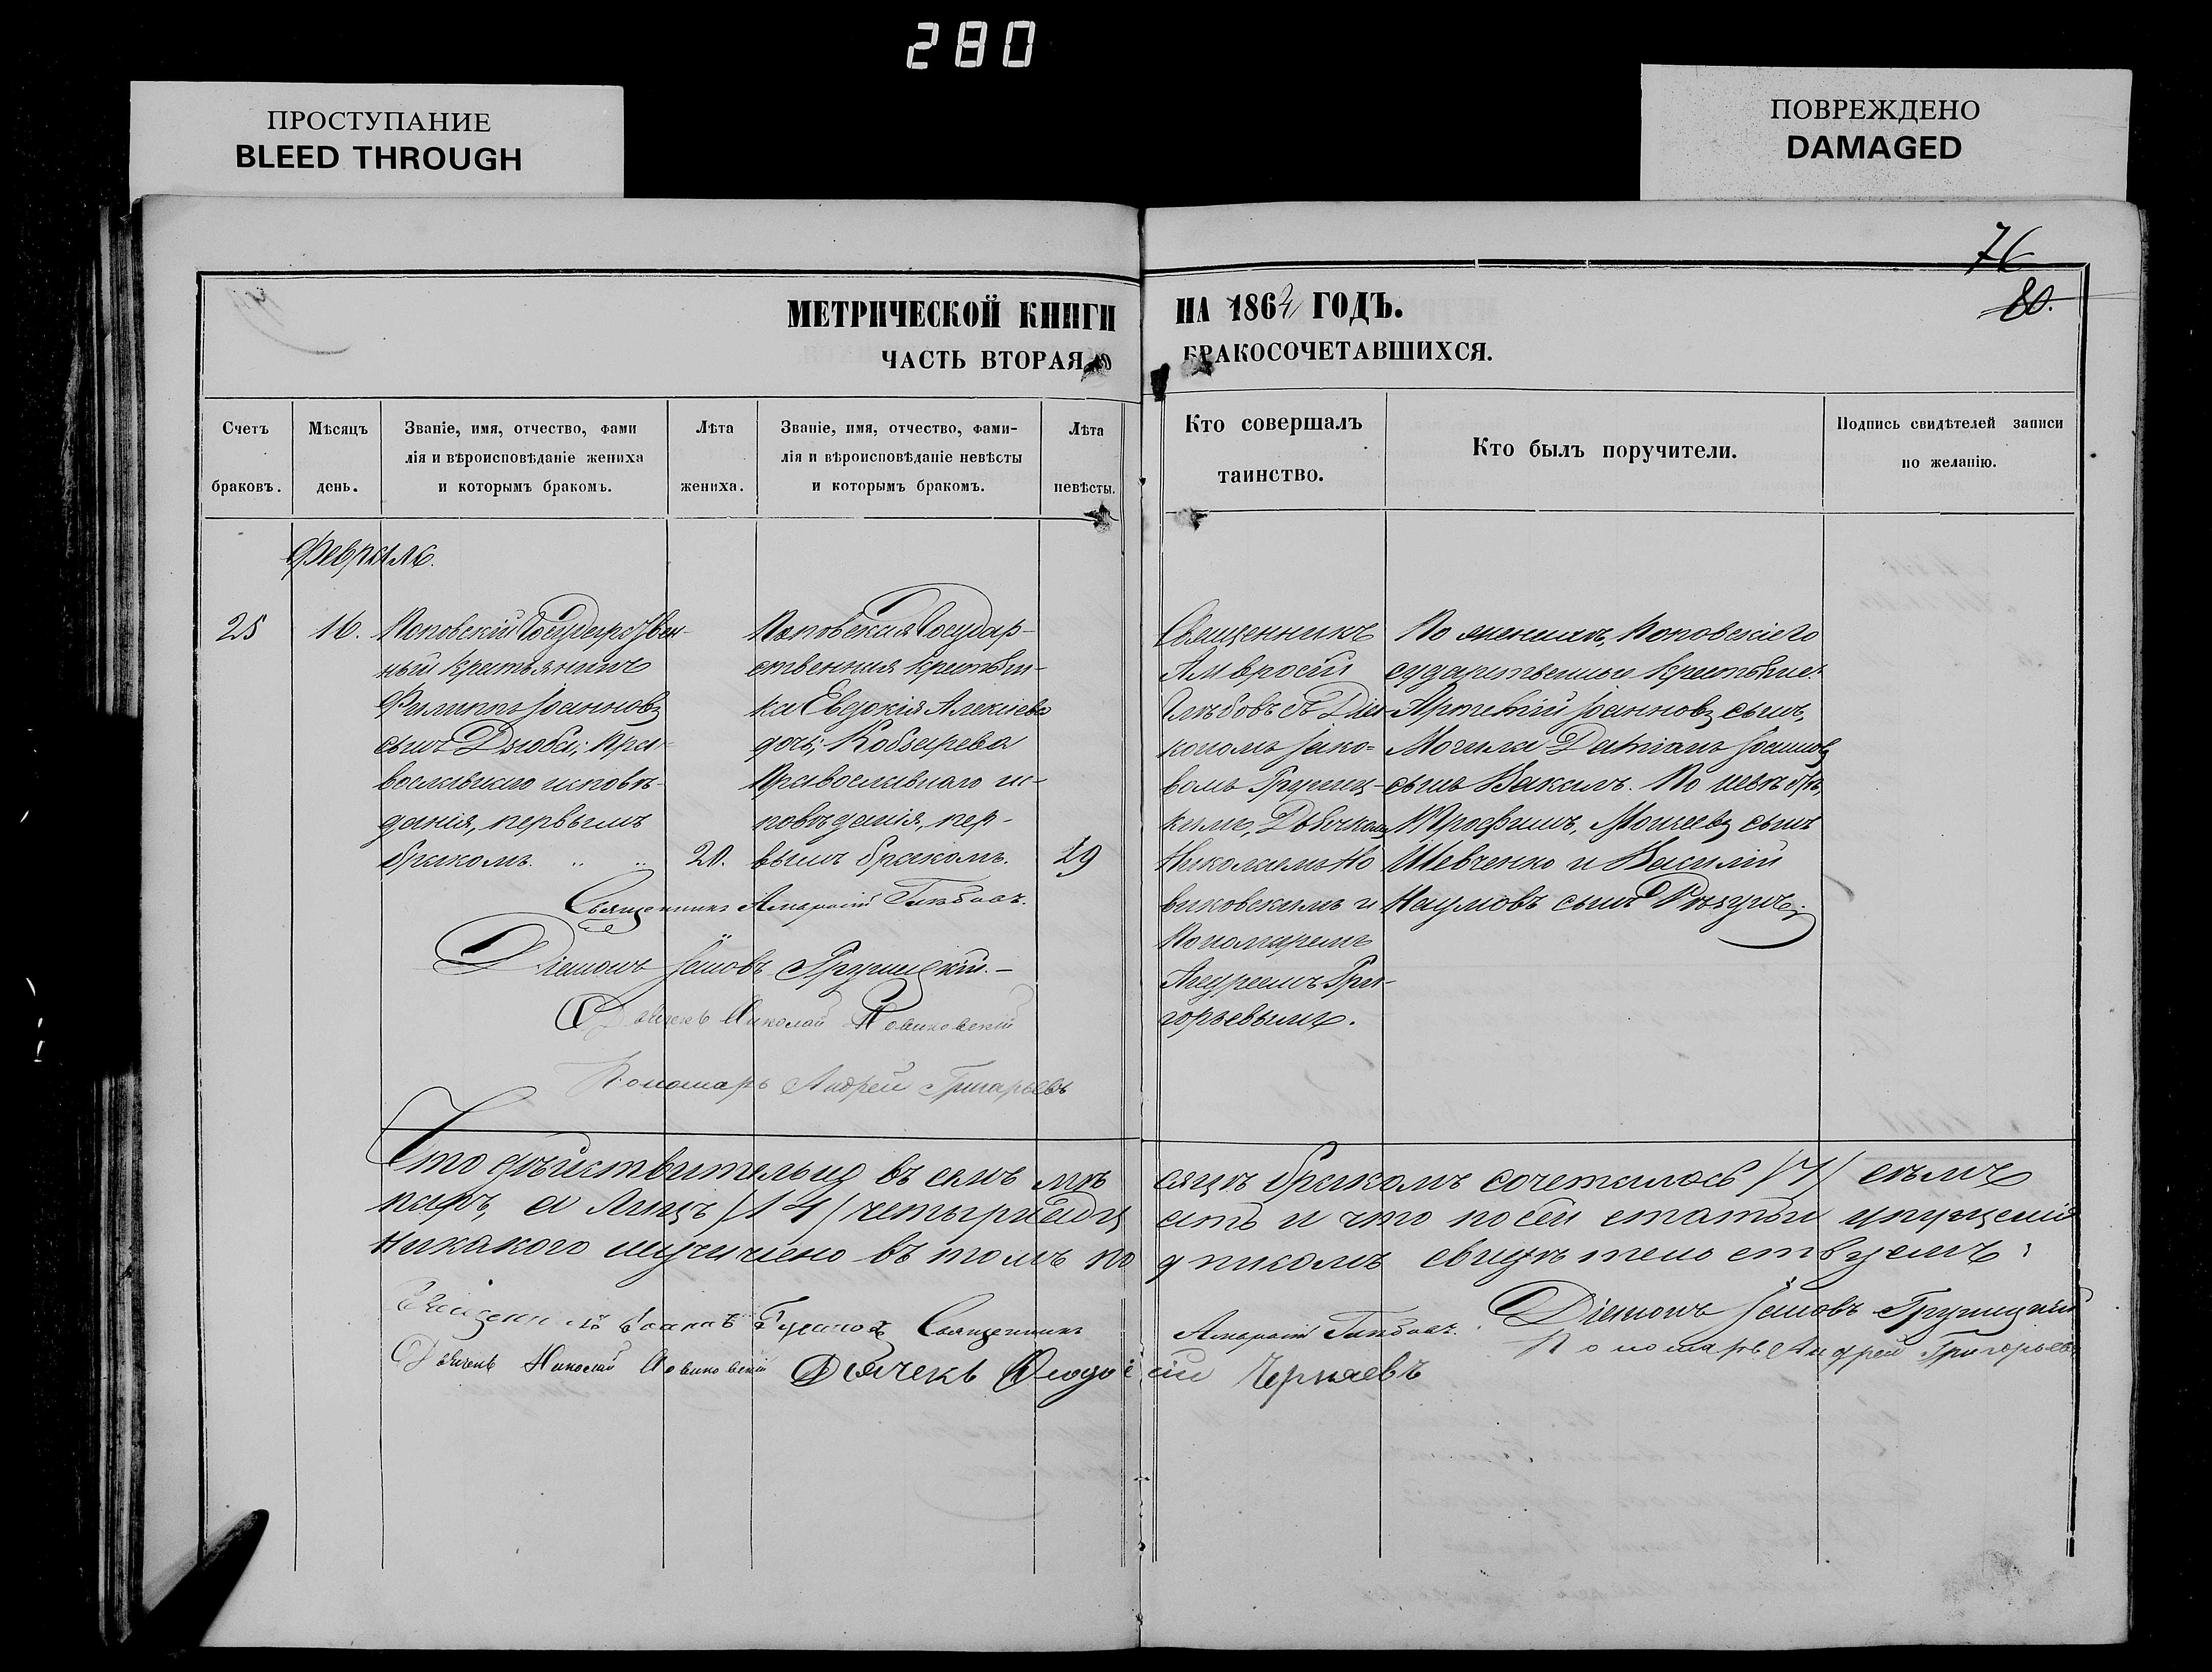 280
ПРОСТУПАНИЕ
BLEED THROUGH
ПОВРЕЖДЕНО
DAMAGED
76
80.
МЕТРИЧЕСКОЙ КНИГИ НА 1864 ГОДЪ.
ЧАСТЬ ВТОРАЯ, БРАКОСОЧЕТАВШИХСЯ.
Счетъ
браковъ.
Мѣсяцъ
день.
Званіе, имя, отчество, фами
лія и вѣроисповѣданіе жениха
и которымъ бракомъ.
Лѣта
жениха.
Званіе, имя, отчество, фами-
лія и вѣроисповѣданіе невѣсты
и которымъ бракомъ.
Лѣта
невѣсты.
Кто совершалъ
таинство.
Кто былъ поручители.
Подпись свидѣтелей записи
по желанію.
Февраля.
25
16.
Поповскій Государствен-
ный крестьянинъ
Филиппъ Іоанновъ
сынъ Дзюба; пра-
вославнаго исповѣ-
данія, первымъ
бракомъ.
20.
Поповская Государ-
ственная крестьян-
ка Евдокія Алексіева
дочь; Кобзарева
Православнаго ис-
повѣданія, пер-
вымъ бракомъ.
19
Священникъ
Амвросій
Глѣбовъ съ Діа-
кономъ Іако-
вомъ Грушиц-
кимъ, Дьячкомъ
Николаемъ Но
виковскимъ и
Пономаремъ
Андреемъ Гри-
горьевымъ.
По женихѣ, Поповскіе Го
сударственные крестьяне:
Артемій Іоанновъ сынъ,
Могила Даміанъ Іоанновъ
сынъ По невѣстѣ,
Трофимъ, Моисеевъ сынъ
Шевченко и Василій
Наумовъ сынъ
Священникъ Амвросій Глѣбовъ.
Діаконъ Іаковъ Грушицкій.-
Дьячекъ Николай Новиковскій
Пономарь Андрей Григорьевъ
Что дѣйствительно въ семъ мѣ сяцѣ бракомъ сочеталось /7/ семь
паръ, а лицъ /14/ четырнадц ать и что по сей статьи упущенія
никакого неучинено въ томъ по дписомъ свидѣтельствуемъ:
Священникъ Іоаннъ Священникъ Амвросій Глѣбовъ. Діаконъ Іаковъ Грушицкій
Дьячекъ Николай Новиковскій Дьячекъ Ѳеодосій Черняевъ Пономарь Андрей Григорьевъ